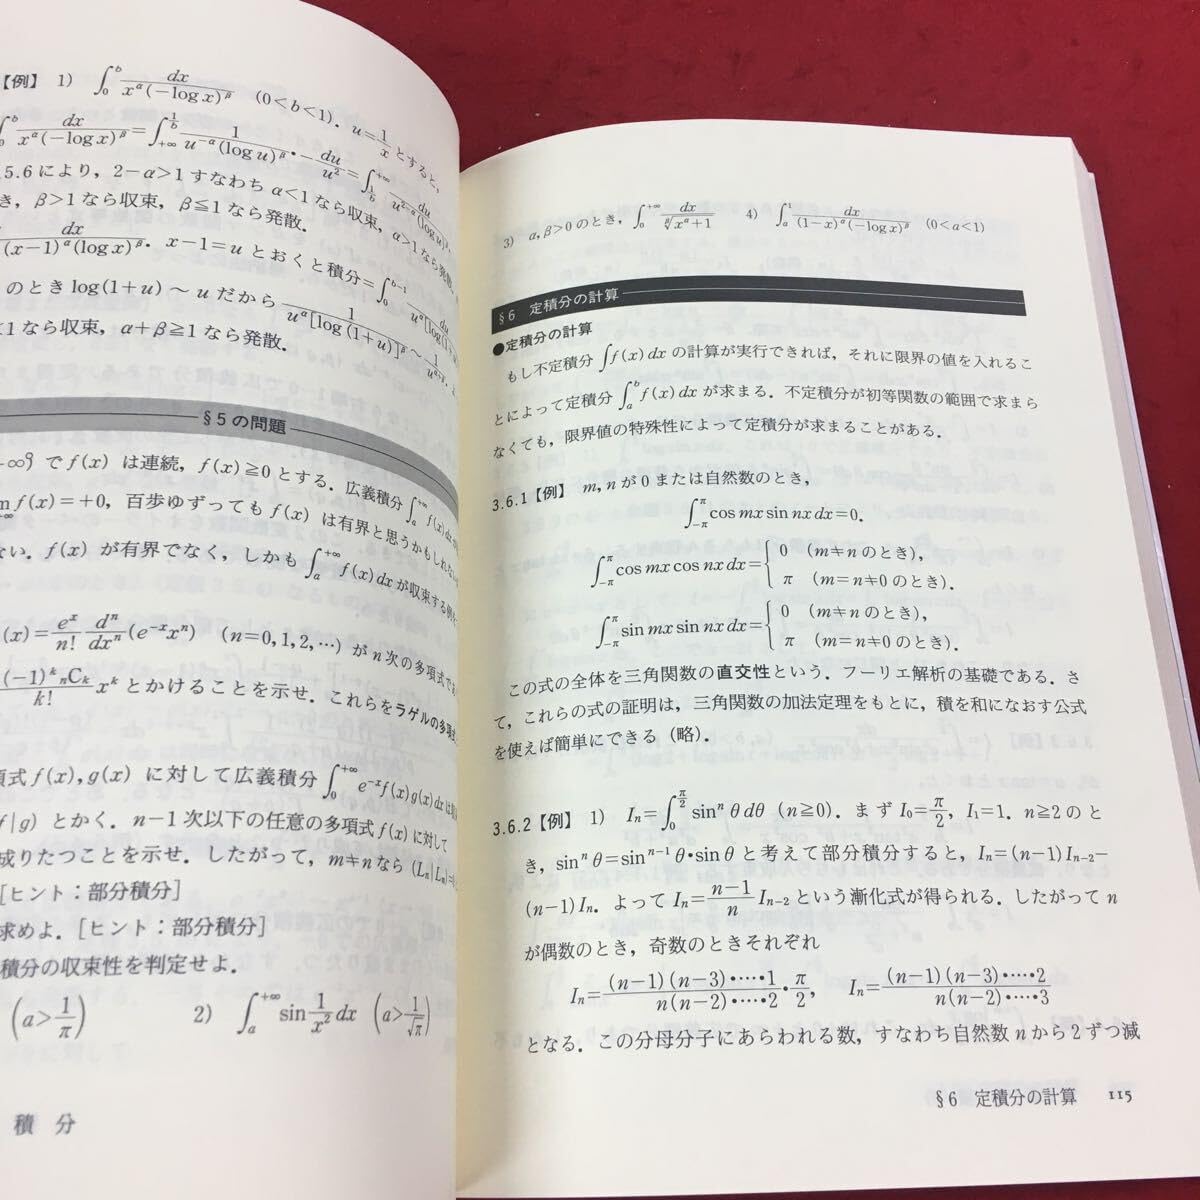 【例】 1) ∫₀ᵇ dx/(x^α(−log x)^β) (0<b<1). u=1/x とすると,
∫₀ᵇ dx/(x^α(−log x)^β)=∫_{+∞}^{1/b} 1/(u^{−α}(log u)^β)・−du/u²=∫_{1/b} du/(u^{2−α}(log u)^β).
.5.6により, 2−α>1すなわち α<1なら収束, α>1なら発散.
き, β>1なら収束, β≦1なら発散.
dx/((x−1)^α(log x)^β). x−1=u とおくと積分=∫₀^{b−1} du/(u^α[log(1+u)
のとき log(1+u)〜u だから 1/(u^α[log(1+u)]^β)〜1/u^{α+β},
1なら収束, α+β≧1なら発散.
§5の問題
で f(x) は連続, f(x)≧0とする. 広義積分 ∫ₐ^{+∞} f(x)dx
f(x)=+0, 百歩ゆずっても f(x) は有界と思うかもしれない
ない. f(x) が有界でなく, しかも ∫ₐ^{+∞} f(x)dx が収束する例を
(x)=eˣ/n! dⁿ/dxⁿ(e^{−x}xⁿ) (n=0,1,2,…) が n次の多項式であ
(−1)ᵏ ₙCₖ/k! xᵏ とかけることを示せ. これらをラゲルの多項式
項式 f(x), g(x) に対して広義積分 ∫₀^{+∞} e^{−x}f(x)g(x)dx は
f|g) とかく. n−1次以下の任意の多項式 f(x) に対して
成りたつことを示せ. したがって, m≠n なら (Lₘ|Lₙ)=
[ヒント:部分積分]
求めよ. [ヒント:部分積分]
積分の収束性を判定せよ.
(a>1/π) 2) ∫ₐ^{+∞} sin 1/x² dx (a>1/√π)
積 分
3) α, β>0のとき, ∫₀^{+∞} dx/ᵝ√(x^α+1) 4) ∫ₐ¹ dx/((1−x)^α(−log x)^β) (0<a<1)
§6 定積分の計算
●定積分の計算
もし不定積分 ∫f(x)dx の計算が実行できれば, それに限界の値を入れるこ
とによって定積分 ∫ₐᵇ f(x)dx が求まる. 不定積分が初等関数の範囲で求まら
なくても, 限界値の特殊性によって定積分が求まることがある.
3.6.1【例】 m, n が0または自然数のとき,
∫_{−π}^{π} cos mx sin nx dx=0.
∫_{−π}^{π} cos mx cos nx dx={ 0 (m≠n のとき),
π (m=n≠0 のとき).
∫_{−π}^{π} sin mx sin nx dx={ 0 (m≠n のとき),
π (m=n≠0 のとき).
この式の全体を三角関数の直交性という. フーリエ解析の基礎である. さ
て, これらの式の証明は, 三角関数の加法定理をもとに, 積を和になおす公式
を使えば簡単にできる (略).
3.6.2【例】 1) Iₙ=∫₀^{π/2} sinⁿ θ dθ (n≧0). まず I₀=π/2, I₁=1. n≧2のと
き, sinⁿ θ=sin^{n−1} θ・sin θ と考えて部分積分すると, Iₙ=(n−1)I_{n−2}−
(n−1)Iₙ. よって Iₙ=(n−1)/n I_{n−2} という漸化式が得られる. したがって n
が偶数のとき, 奇数のときそれぞれ
Iₙ=(n−1)(n−3)・……・1/n(n−2)・……・2・π/2, Iₙ=(n−1)(n−3)・……・2/n(n−2)・……・3
となる. この分母分子にあらわれる数, すなわち自然数 n から2ずつ減
§6 定積分の計算 115